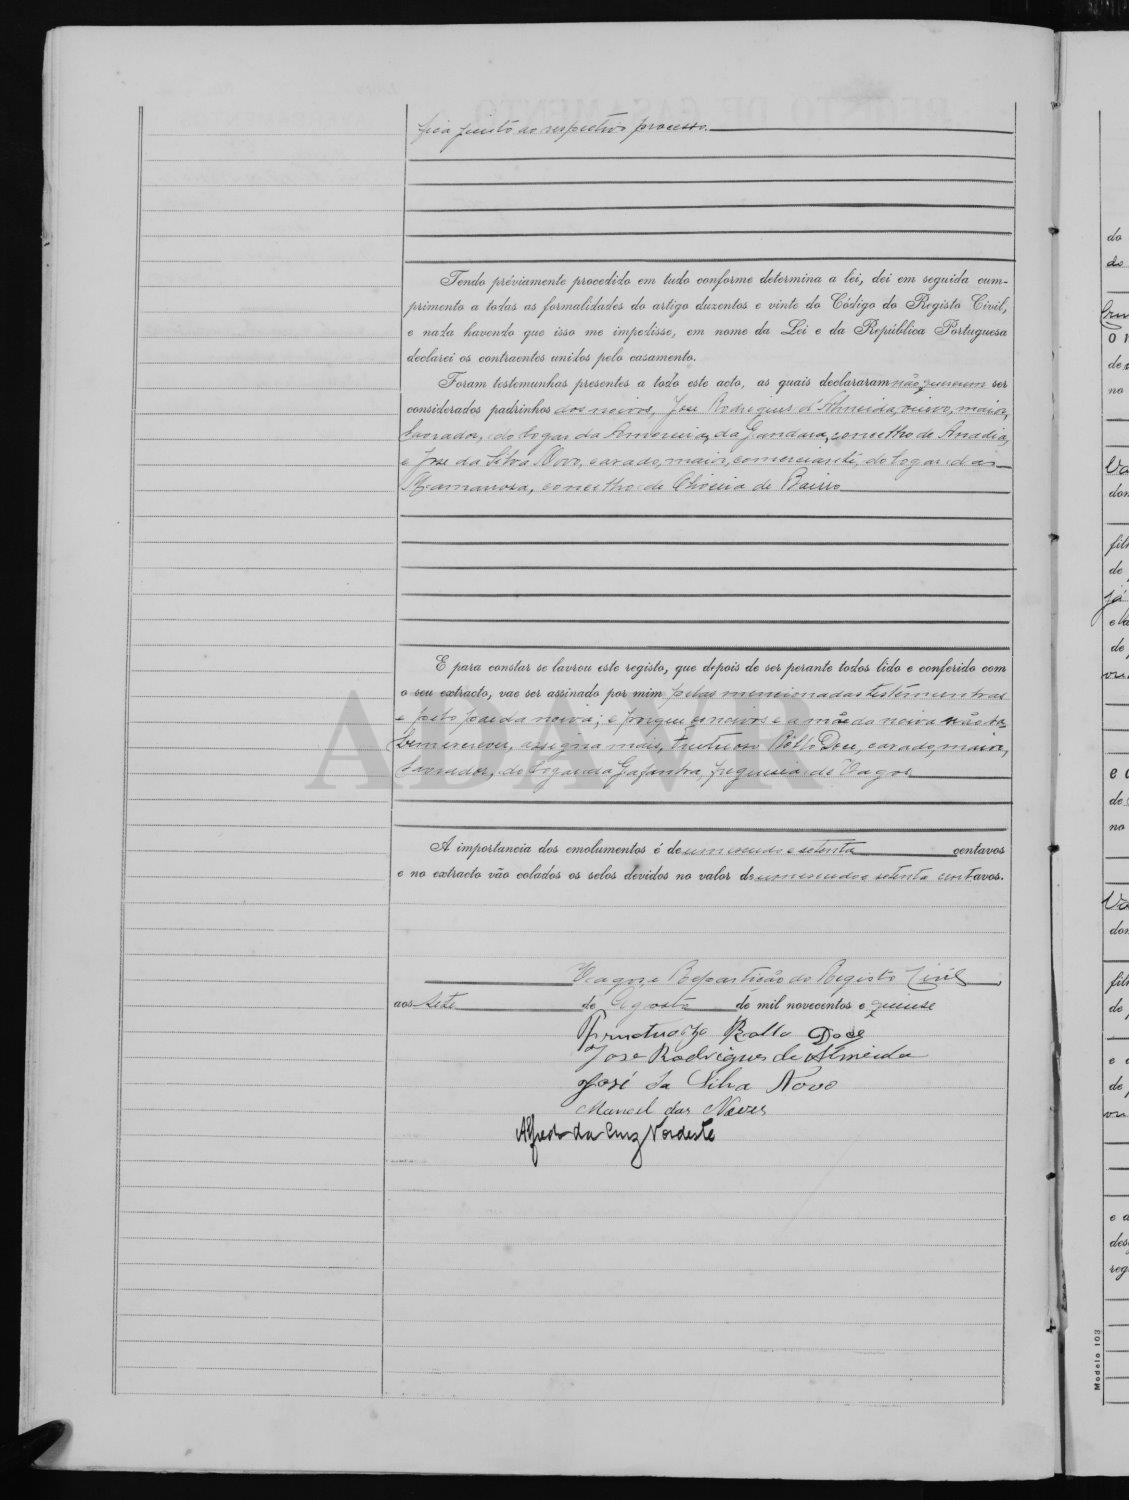 fica junto ao respectivo processo.
Tendo préviamente procedido em tudo conforme determina a lei, dei em seguida cum-
primento a todas as formalidades do artigo duzentos e vinte do Código do Registo Civil,
e nada havendo que isso me impedisse, em nome da Lei e da República Portuguesa
declarei os contraentes unidos pelo casamento.
Foram testemunhas presentes a todo este acto, as quais declararam não quererem ser
considerados padrinhos dos noivos, José Rodrigues d'Almeida, viuvo, maior,
lavrador, do logar da Amoreira da Gandara, concelho de Anadia,
e José da Silva Novo, casado, maior, comerciante, do logar da
Mamarrosa, concelho de Oliveira de Bairro
E para constar se lavrou este registo, que depois de ser perante todos lido e conferido com
o seu extracto, vae ser assinado por mim pelas mencionadas testemunhas
e pelo pae da noiva; e porque os noivos e a mãe da noiva não sa-
bem escrever, assigna mais, Frutuoso Rôllo Doce, casado, maior,
lavrador, do logar da Gafanha, freguesia de Vagos
A importancia dos emolumentos é de um escudo e setenta centavos
e no extracto vão colados os selos devidos no valor de um escudo e setenta centavos.
Vagos e Repartição do Registo Civil,
aos sete de Agosto de mil novecentos e quinse
Fructuozo Rollo Doce
José Rodrigues de Almeida
José da Silva Novo
Manoel das Neves
Alfredo da Cruz Nordeste
ADAVR
Modelo 103